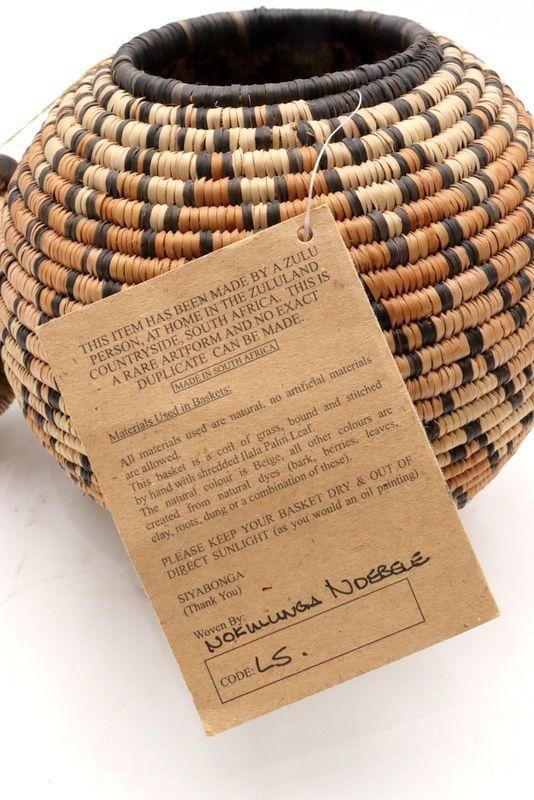 THIS ITEM HAS BEEN MADE BY A ZULU
PERSON, AT HOME IN THE ZULULAND
COUNTRYSIDE, SOUTH AFRICA. THIS IS
A RARE ARTFORM AND NO EXACT
DUPLICATE CAN BE MADE.
MADE IN SOUTH AFRICA
Materials Used in Baskets:
All materials used are natural, no artificial materials
are allowed.
This basket is a coil of grass, bound and stitched
by hand with shredded Ilala Palm Leaf.
The natural colour is Beige, all other colours are
created from natural dyes (bark, berries, leaves,
clay, roots, dung or a combination of these)
PLEASE KEEP YOUR BASKET DRY & OUT OF
DIRECT SUNLIGHT (as you would an oil painting)
SIYABONGA
(Thank You)
Woven By:
NDEBELE
CODE: LS.